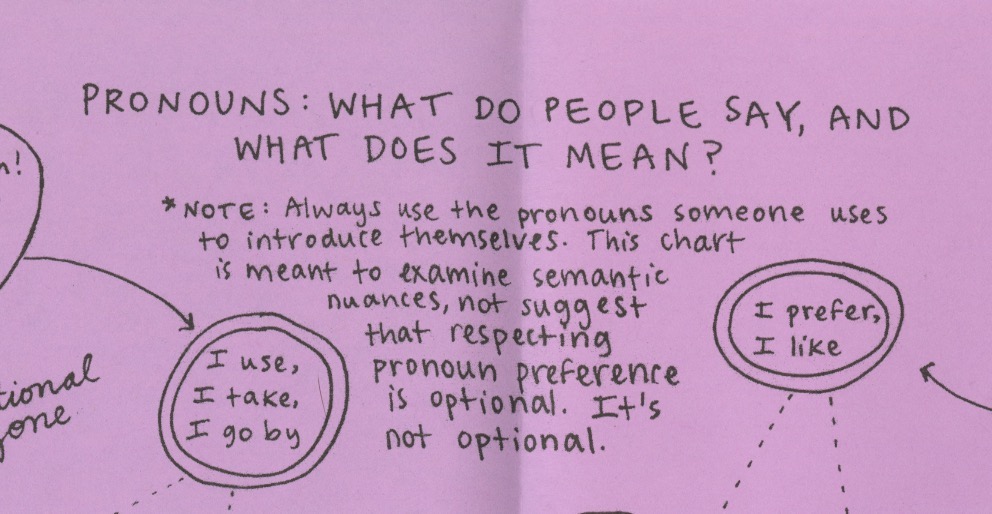 PRONOUNS: WHAT DO PEOPLE SAY, AND
WHAT DOES IT MEAN?
*NOTE: Always use the pronouns someone uses
to introduce themselves. This chart
is meant to examine semantic
nuances, not suggest
that respecting
pronoun preference
is optional. It's
not optional.
I use,
I take,
I go by
I prefer,
I like